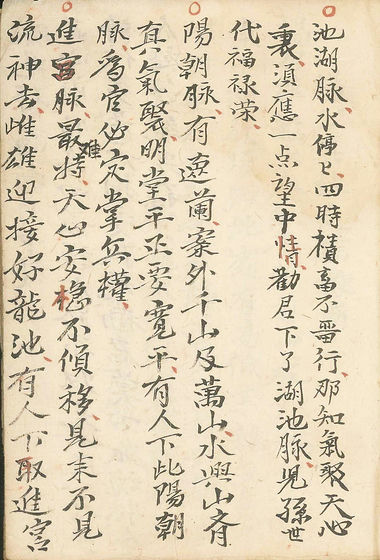 池湖脉水停匕四時積畜不畱行那知氣聚天心
裏須應一点望中情勸君下了湖池脉児孫世
代福禄荣
陽朝脉有逆蘭寨外千山及萬山水與山齊
真氣聚明堂平正要寛平有人下此陽朝
脉為官必定掌兵權
進宫脉最難持天心安穏不傾移見来不見
流神去雌雄迎接好龍池有人下取進宫